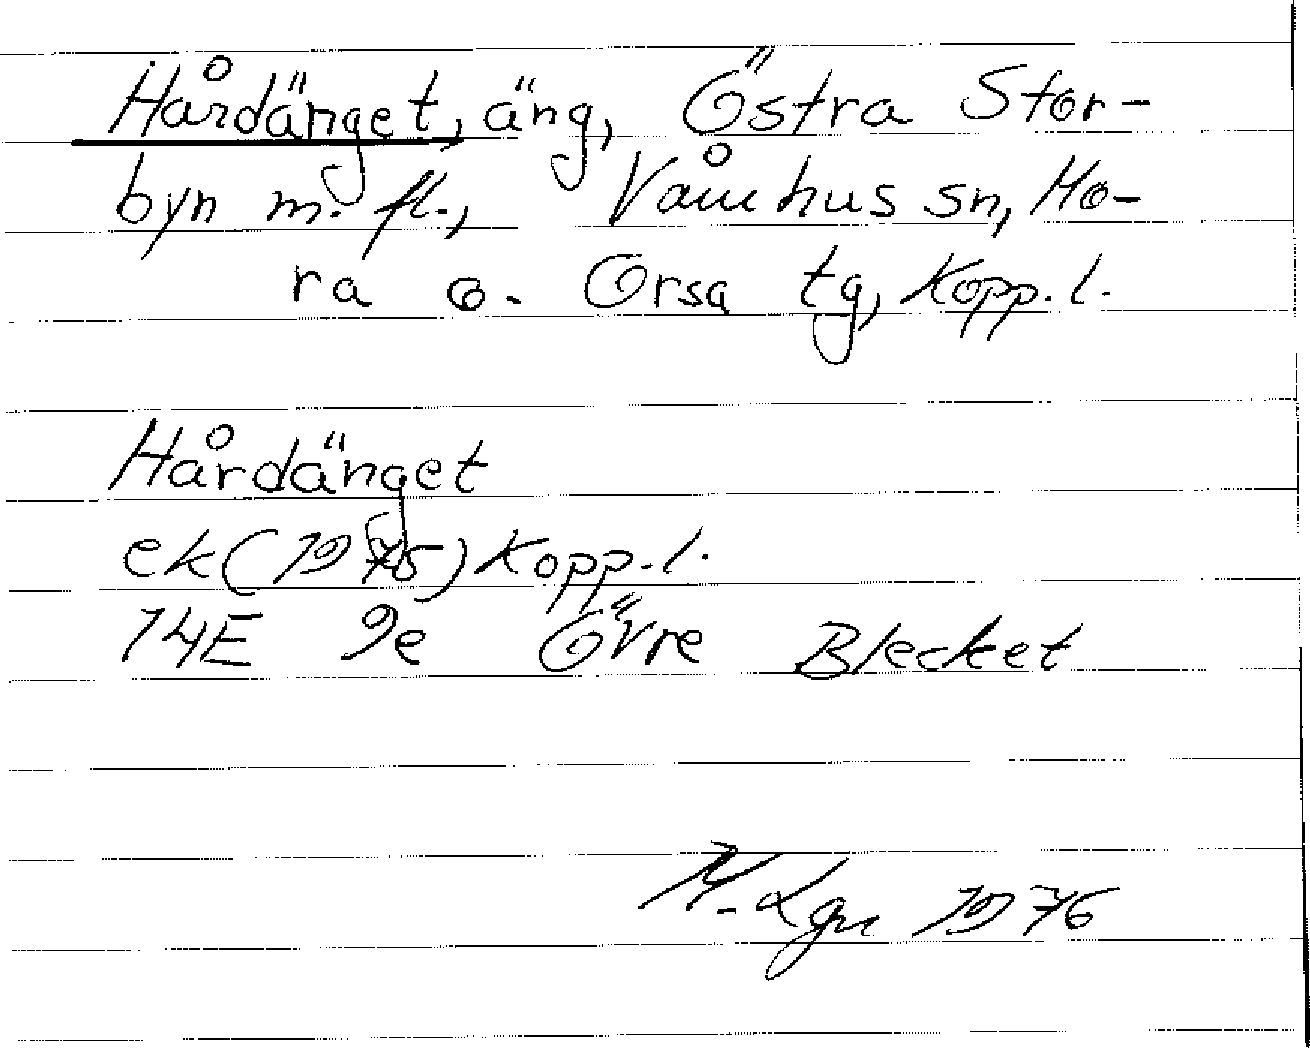 Hårdänget, äng, Östra Stor-
byn m. fl., Våmhus sn, Mo-
ra o. Orsa tg, Kopp. l.
Hårdänget
ek (1975) Kopp. l.
14E 9e Övre Blecket
M. Lgn 1976